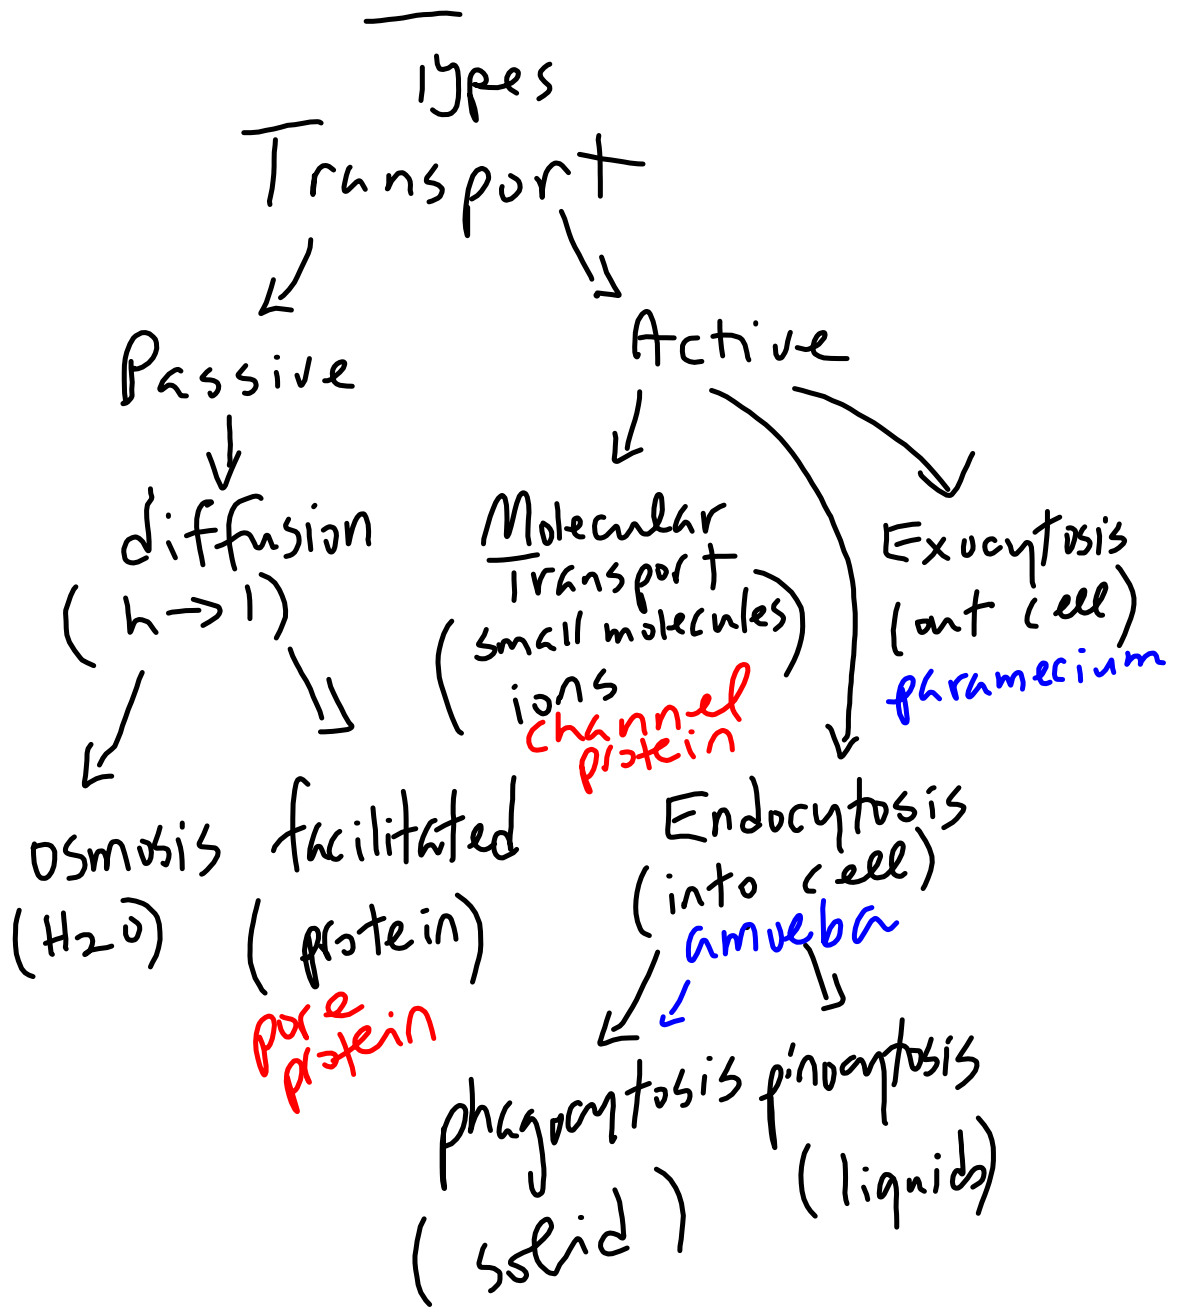 Types
Transport
Passive
Active
diffusion
(h → l)
Molecular
Transport
(small molecules
ions)
channel
protein
Exocytosis
(out cell)
paramecium
osmosis
(H2O)
facilitated
(protein)
pore
protein
Endocytosis
(into cell)
amoeba
phagocytosis
(solid)
pinocytosis
(liquids)